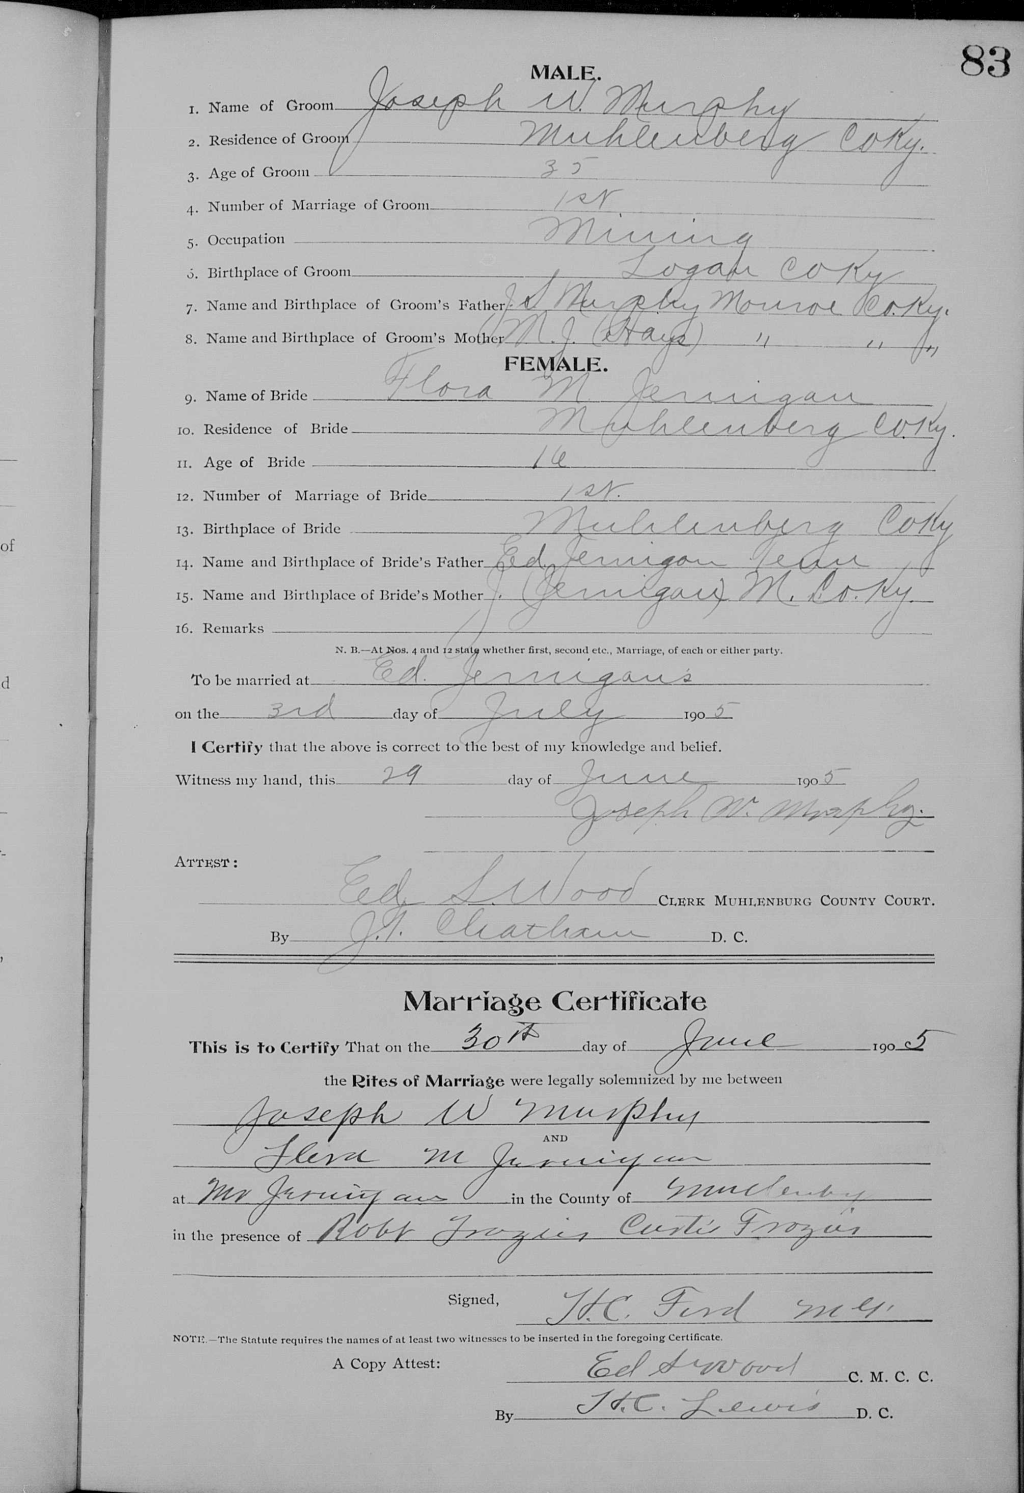 83
MALE.
1. Name of Groom Joseph W. Murphy
2. Residence of Groom Muhlenberg Co Ky.
3. Age of Groom 35
4. Number of Marriage of Groom 1st
5. Occupation Mining
6. Birthplace of Groom Logan Co Ky
7. Name and Birthplace of Groom's Father J S Murphy Monroe Co. Ky.
8. Name and Birthplace of Groom's Mother M. J. (Hays) " " "
FEMALE.
9. Name of Bride Flora M. Jernigan
10. Residence of Bride Muhlenberg Co. Ky.
11. Age of Bride 16
12. Number of Marriage of Bride 1st.
13. Birthplace of Bride Muhlenberg Co Ky
14. Name and Birthplace of Bride's Father Ed. Jernigan Tenn
15. Name and Birthplace of Bride's Mother J. (Jernigan) M. Co. Ky.
16. Remarks
N. B.—At Nos. 4 and 12 state whether first, second etc., Marriage, of each or either party.
To be married at Ed. Jernigan's
on the 3rd day of July 1905
I Certify that the above is correct to the best of my knowledge and belief.
Witness my hand, this 29 day of June 1905
Joseph W. Murphy.
ATTEST:
Ed. S. Wood CLERK MUHLENBURG COUNTY COURT.
By J.T. Chatham D. C.
Marriage Certificate
This is to Certify That on the 30th day of June 1905
the Rites of Marriage were legally solemnized by me between
Joseph W Murphy
AND
Flora M Jernigan
at Mr Jernigan in the County of Muhlenberg
in the presence of Robt Frozier Curtis Frozier
Signed, H.C. Ford M G.
NOTE.—The Statute requires the names of at least two witnesses to be inserted in the foregoing Certificate.
A Copy Attest: Ed S Wood C. M. C. C.
By H.C. Lewis D. C.
of
d